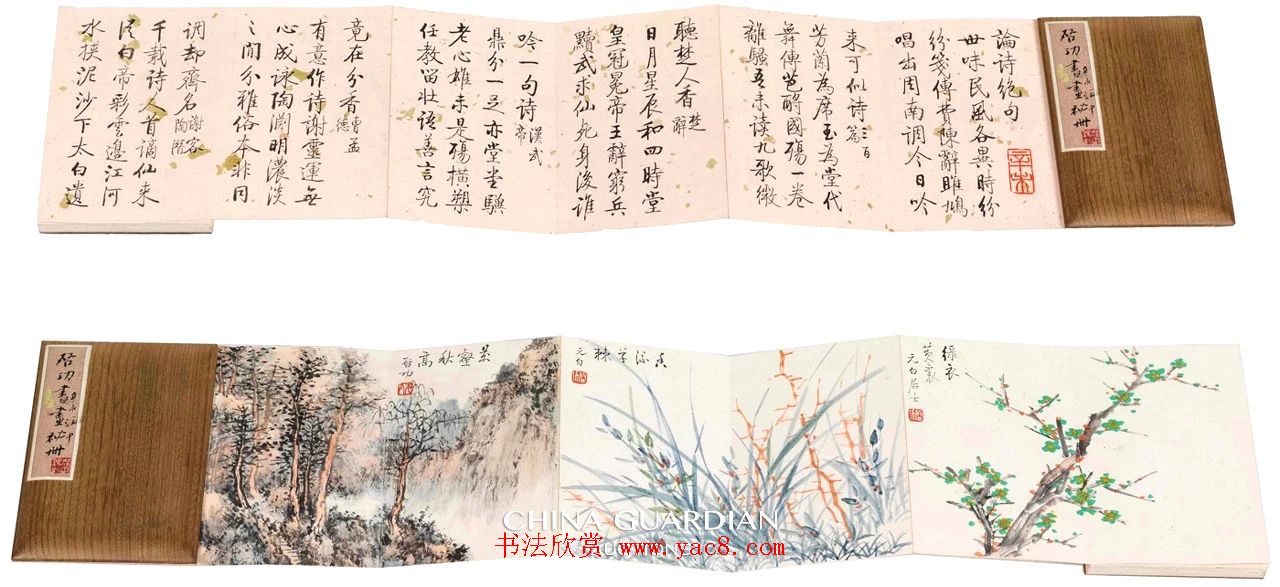 启功書畫袖冊
論詩絕句
世味民風各異時紛
紛箋傳費陳辭雎鳩
唱出周南調今日吟
來可似詩 三百篇
芳蘭為席玉為堂代
舞傳芭酹國殤一卷
離騷吾未读九歌微
聽楚人香 楚辭
日月星辰和四時堂
皇冠冕帝王辭窮兵
黷武求仙死身後誰
吟一句詩 漢武帝
鼎分一足亦堂堂驥
老心雄未是殤橫槊
任教留壯語善言究
竟在分香 曹孟德
有意作詩謝靈運無
心成詠陶淵明濃淡
之間分雅俗本非同
调却齊名 謝客陶潛
千載詩人首謫仙来
從白帝彩雲邊江河
水挾泥沙下太白遺
辛未
綠衣
黃裏
元白居士
元白
萬壑秋高
啓功
启功書畫袖冊
CHINA GUARDIAN
书法欣赏 www.yac8.com